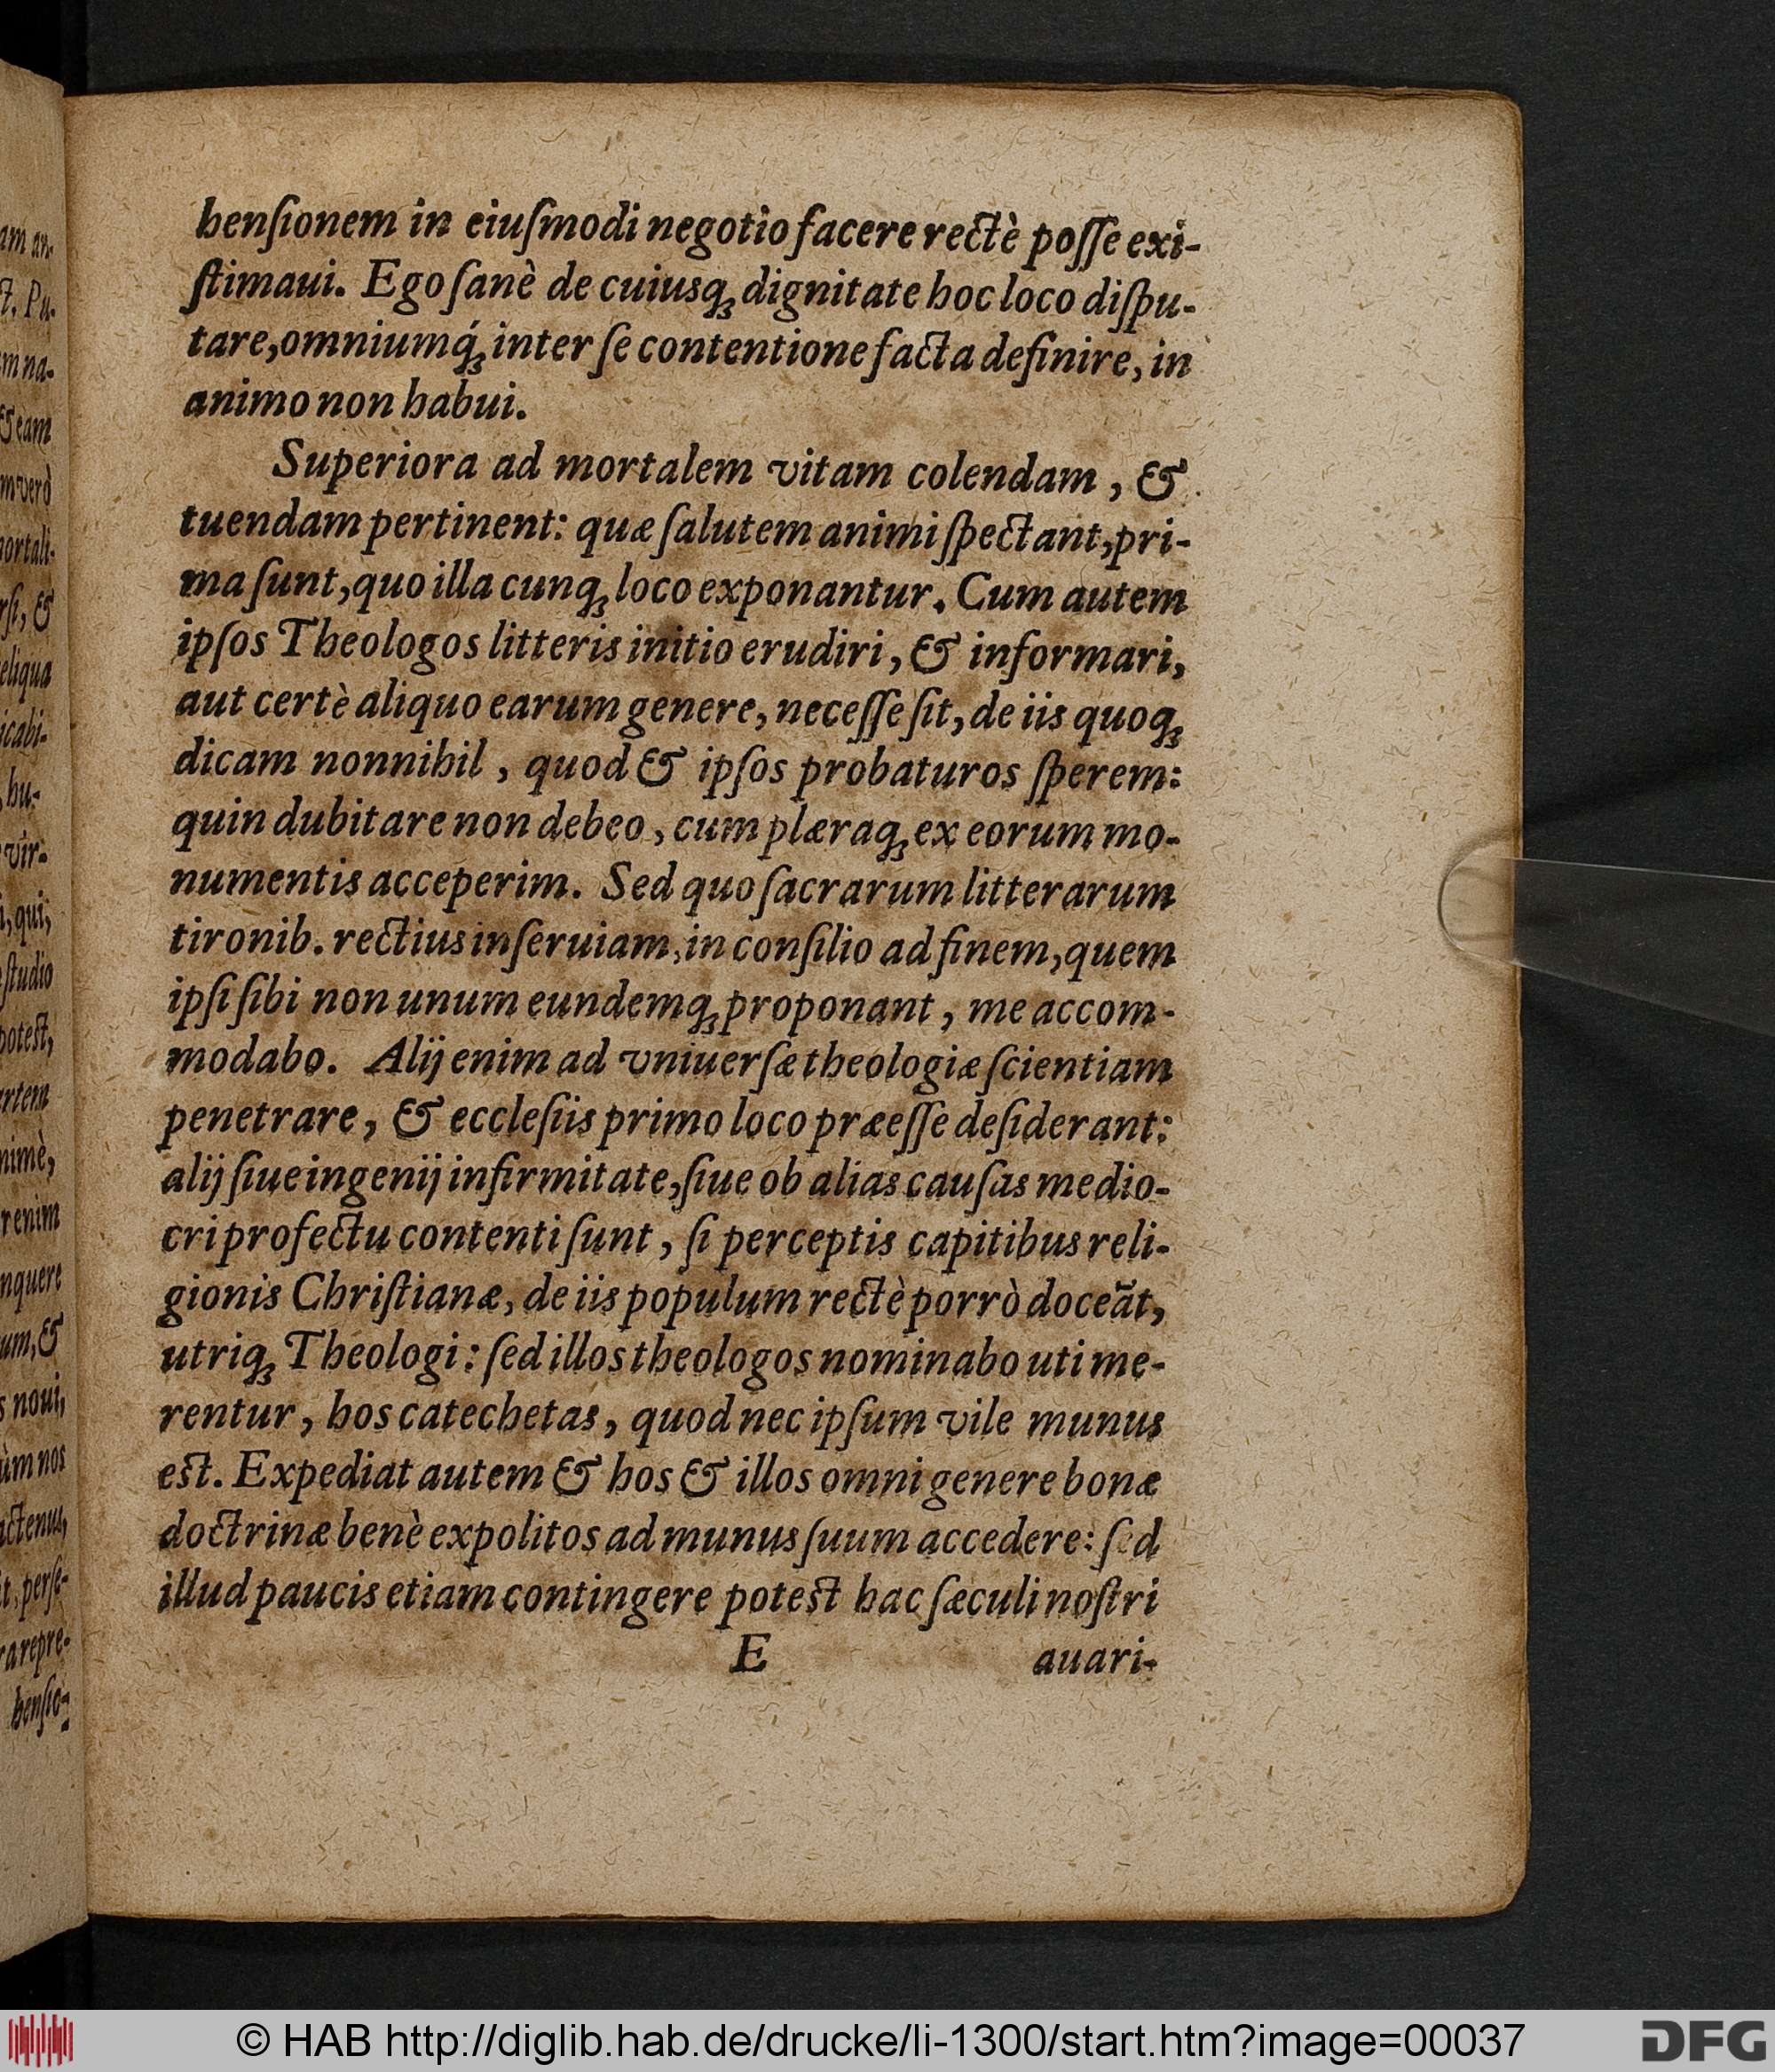 henſionem in eiuſmodi negotio facere rectè poſſe exi-
ſtimaui. Ego ſanè de cuiusq; dignitate hoc loco diſpu-
tare, omniumq́; inter ſe contentione facta definire, in
animo non habui.
Superiora ad mortalem vitam colendam, &
tuendam pertinent: quæ ſalutem animi ſpectant, pri-
ma ſunt, quo illa cunq; loco exponantur. Cum autem
ipſos Theologos litteris initio erudiri, & informari,
aut certè aliquo earum genere, neceſſe ſit, de iis quoq;
dicam nonnihil, quod & ipſos probaturos ſperem:
quin dubitare non debeo, cum plæraq; ex eorum mo-
numentis acceperim. Sed quo ſacrarum litterarum
tironib. rectius inſeruiam, in conſilio ad finem, quem
ipſi ſibi non unum eundemq; proponant, me accom-
modabo. Alij enim ad vniuerſæ theologiæ ſcientiam
penetrare, & eccleſiis primo loco præeſſe deſiderant:
alij ſiue ingenij infirmitate, ſiue ob alias cauſas medio-
cri profectu contenti ſunt, ſi perceptis capitibus reli-
gionis Chriſtianæ, de iis populum rectè porrò doceãt,
utriq; Theologi: ſed illos theologos nominabo uti me-
rentur, hos catechetas, quod nec ipſum vile munus
est. Expediat autem & hos & illos omni genere bonæ
doctrinæ benè expolitos ad munus ſuum accedere: ſed
illud paucis etiam contingere potest hac ſæculi noſtri
E auari-
am an-
ct. Pu-
m na-
& eam
m verò
mortali-
rſi, &
eliqua
icabi-
, hu-
vir-
i, qui,
ſtudio
potest,
artem
nimè,
r enim
nquere
um, &
s noui,
ùm nos
actenus,
it, perſe-
ra repre-
henſio-
© HAB http://diglib.hab.de/drucke/li-1300/start.htm?image=00037
DFG